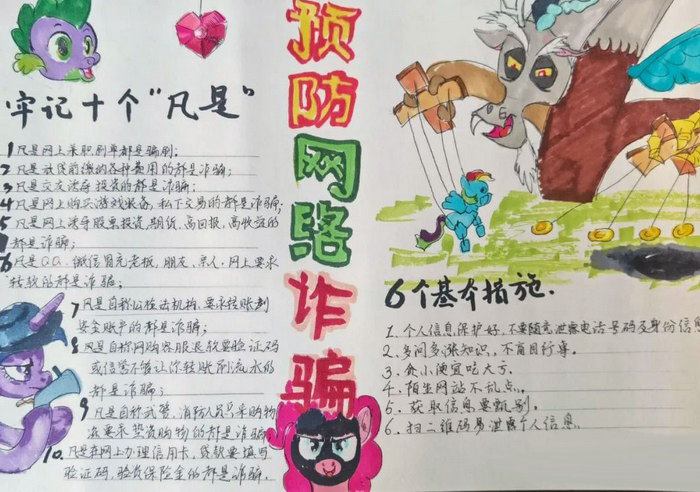 预防网络诈骗
牢记十个"凡是"
1 凡是网上兼职刷单都是骗局;
2 凡是就贷前缴纳各种费用的都是诈骗;
3 凡是交友诱导投资的都是诈骗;
4 凡是网上购买游戏装备、私下交易的都是诈骗;
5 凡是网上诱导股票投资、期货、高回报、高收益的
都是诈骗;
6 凡是QQ、微信冒充老板、朋友、亲人、网上要求
转钱的都是诈骗;
7 凡是自称公检法机构、要求转账到
安全账户的都是诈骗;
8 凡是自称网购客服退款要验证码
或信誉不够让你转账刷流水的
都是诈骗;
9 凡是自称武警、消防人员采购物
资要求垫资购物的都是诈骗;
10 凡是在网上办理信用卡、贷款要填写
验证码、验资保险金的都是诈骗.
6个基本措施.
1. 个人信息保护好,不要随意泄露电话号码及身份信息
2. 多问多涨知识、不盲目行事。
3. 贪小便宜吃大亏.
4. 陌生网站不乱点.
5. 获取信息要甄别.
6. 扫二维码易泄露个人信息.